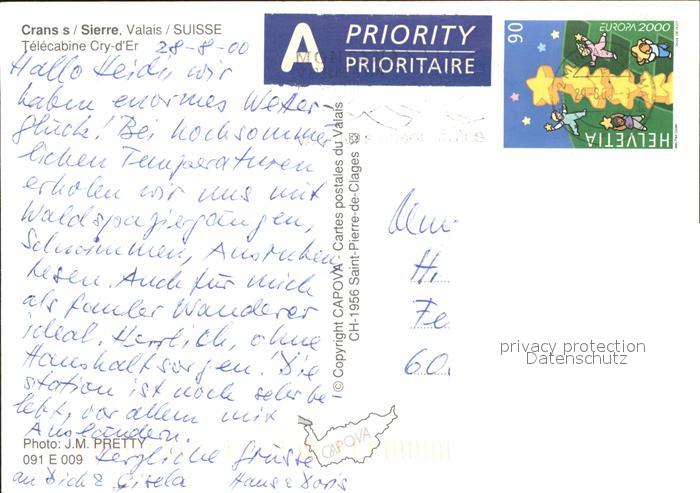 Crans s / Sierre, Valais / SUISSE
Télécabine Cry-d'Er
28-8-00
Hallo Heidi wir
haben enormes Wetter-
glück! Bei hochsommer-
lichen Temperaturen
erholen wir uns mit
Waldspaziergängen,
Schwimmen, Ausruhen
Lesen. Auch für mich
als fauler Wanderer
ideal. Herrlich, ohne
Haushaltsorgen! Die
station ist noch sehr be-
lebt, vor allem mit
Ausländern.
Herzliche Grüsse
an Dich & Gisela Hans & Doris
Photo: J.M. PRETTY
091 E 009
© Copyright CAPOVA - Cartes postales du Valais
CH-1956 Saint-Pierre-de-Clages
CAPOVA
A PRIORITY
PRIORITAIRE
90
EUROPA 2000
HELVETIA
H.
Fe
60
privacy protection
Datenschutz